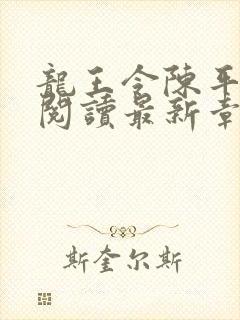 龍王令陳平
閱讀最新章
斯奎尔斯